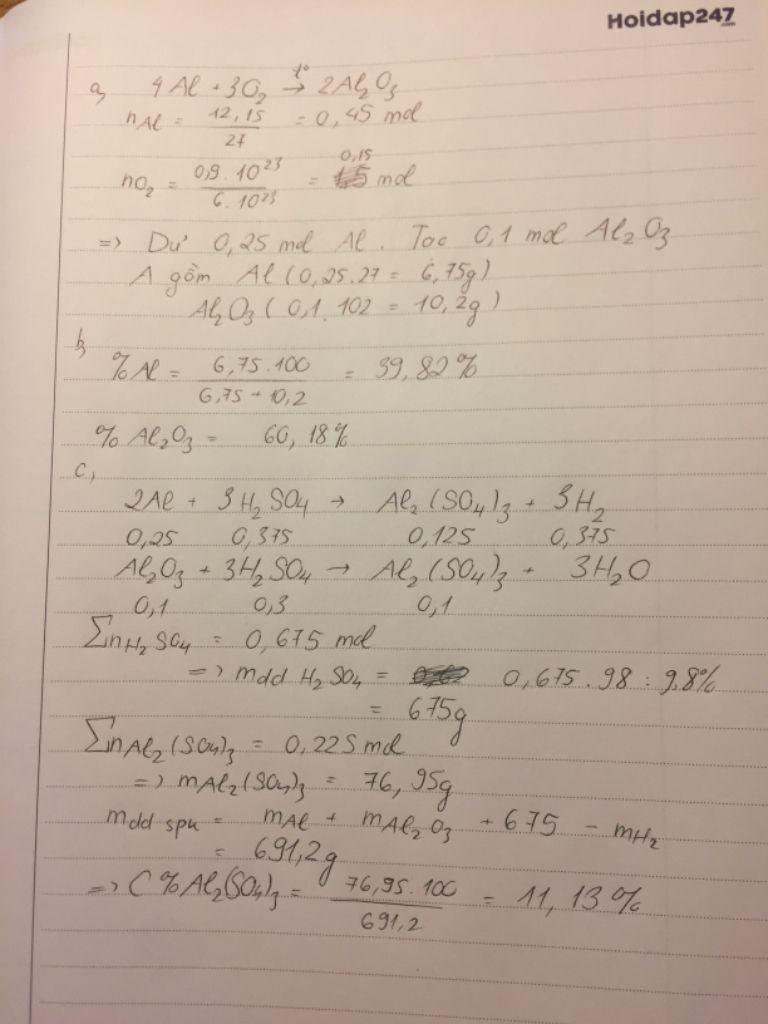 Hoidap247
.com
a, 4Al + 3O₂ t°→ 2Al₂O₃
nAl = 12,15/27 = 0,45 mol
nO₂ = 0,9.10²³/6.10²³ = 0,15 mol
=> Dư 0,25 mol Al. Tạo 0,1 mol Al₂O₃
A gồm Al (0,25.27 = 6,75g)
Al₂O₃ (0,1.102 = 10,2g)
b,
%Al = 6,75.100/6,75+10,2 = 39,82%
%Al₂O₃ = 60,18%
c,
2Al + 3H₂SO₄ → Al₂(SO₄)₃ + 3H₂
0,25 0,375 0,125 0,375
Al₂O₃ + 3H₂SO₄ → Al₂(SO₄)₃ + 3H₂O
0,1 0,3 0,1
ΣnH₂SO₄ = 0,675 mol
=> mdd H₂SO₄ = 0,675.98 : 9,8%
= 675g
ΣnAl₂(SO₄)₃ = 0,225 mol
=> mAl₂(SO₄)₃ = 76,95g
mdd spư = mAl + mAl₂O₃ + 675 - mH₂
= 691,2g
=> C%Al₂(SO₄)₃ = 76,95.100/691,2 = 11,13%